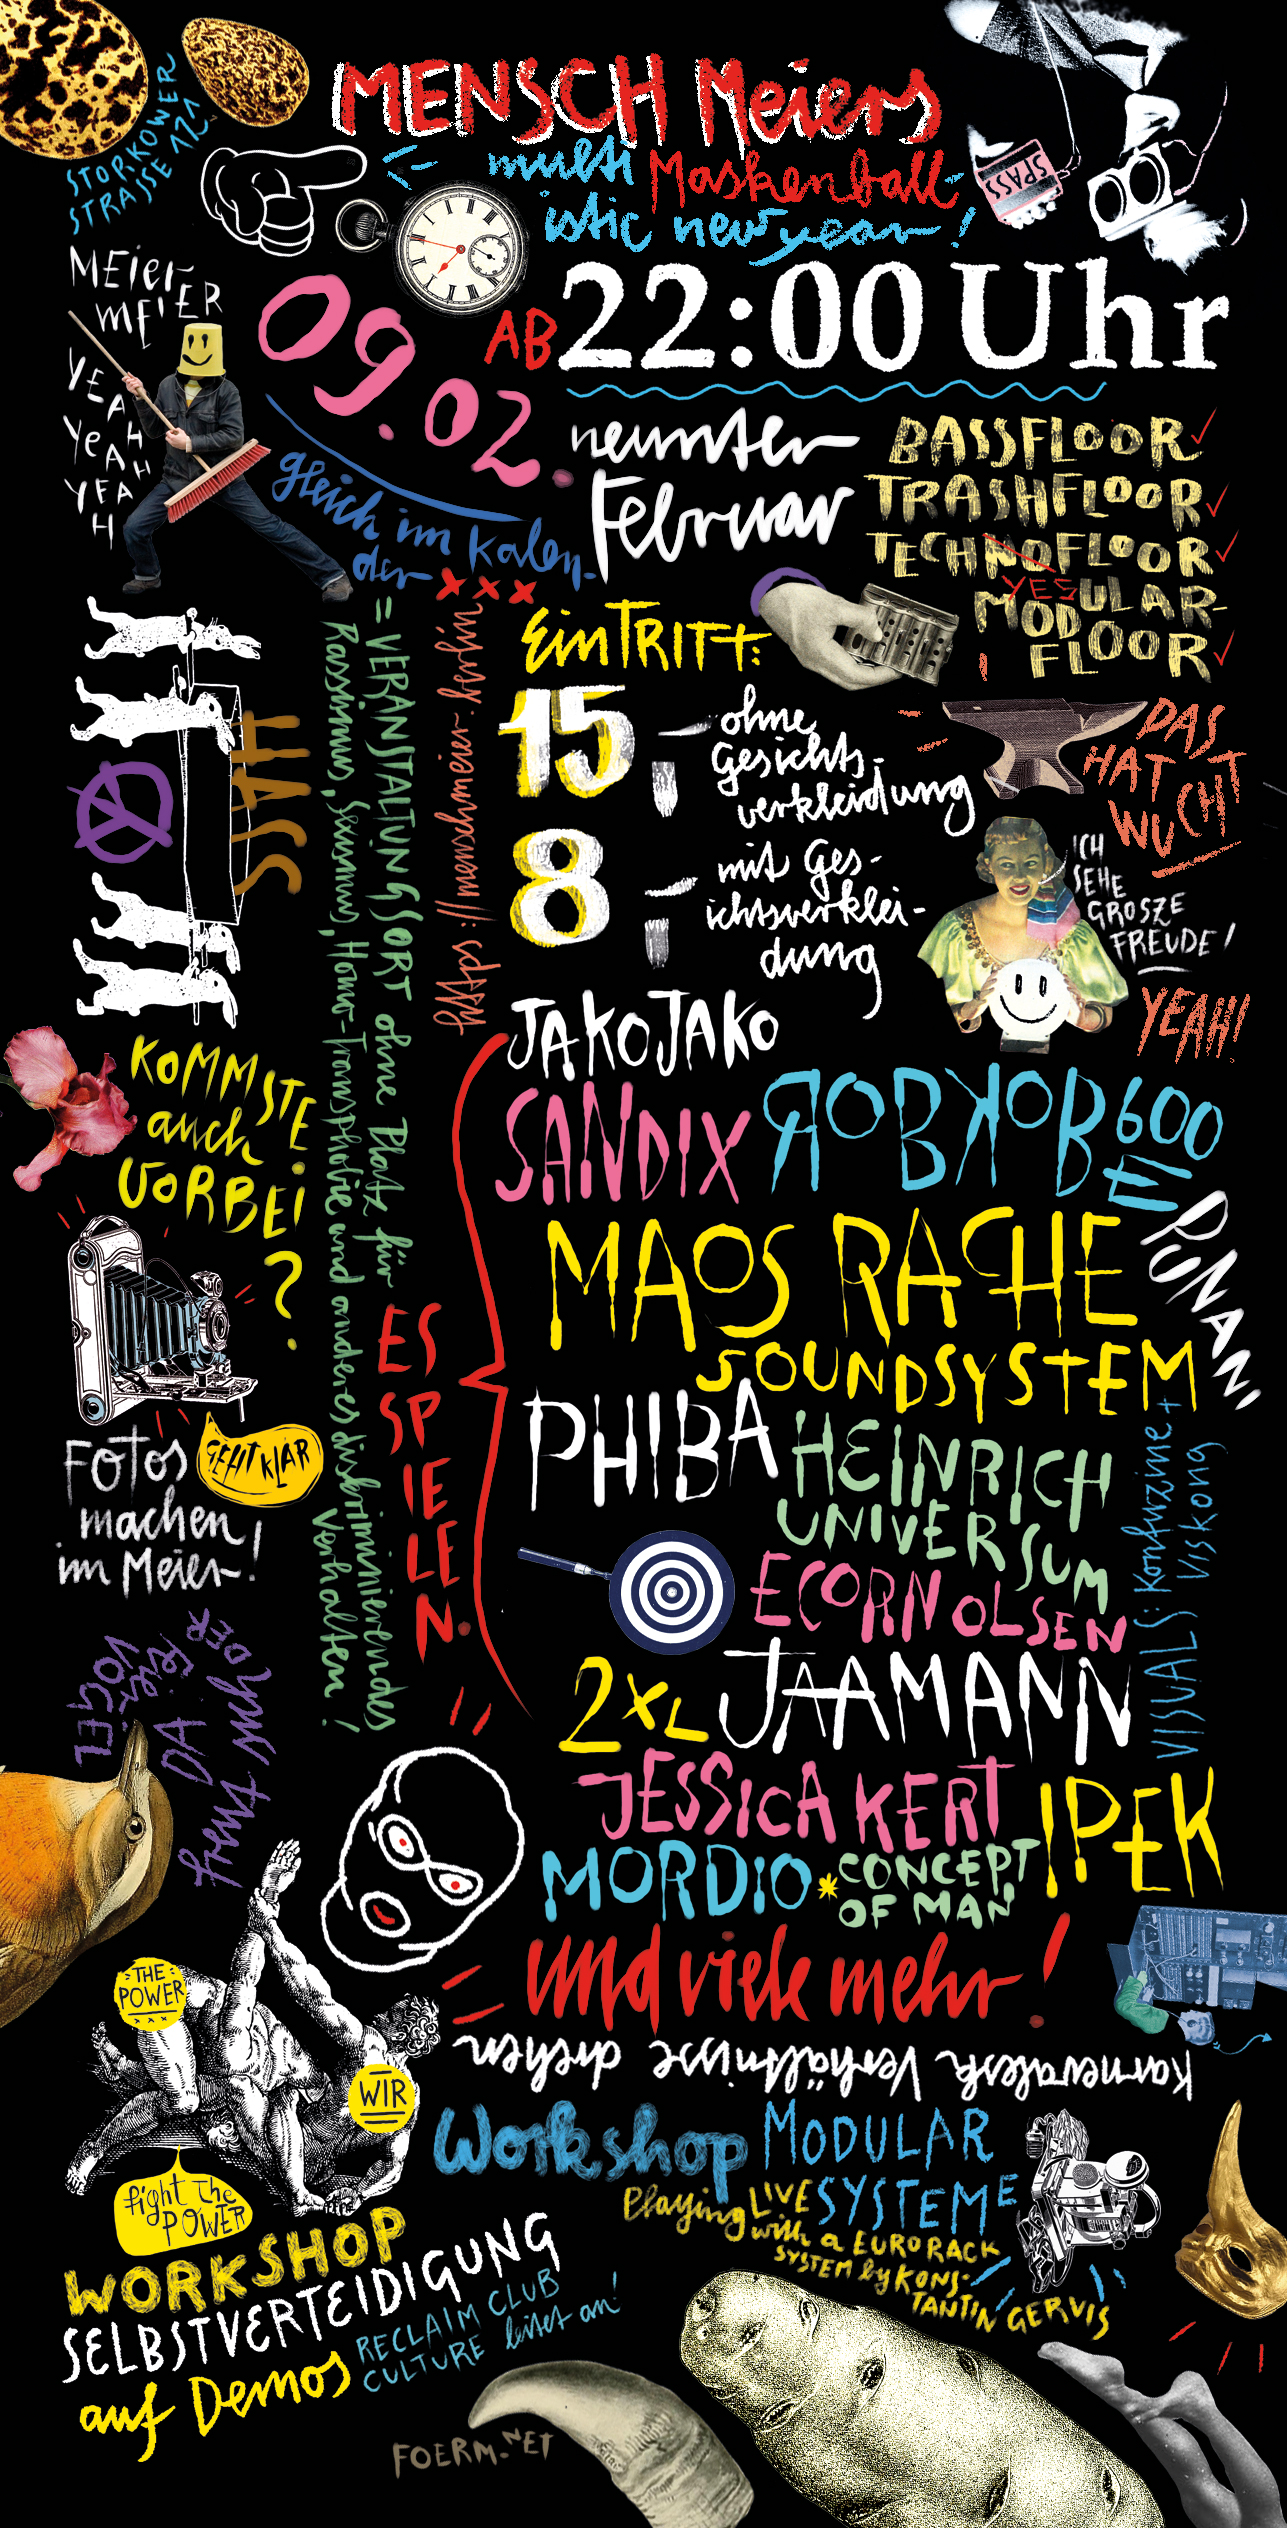 MENSCH Meiers
multi Maskenball-
istic newyear!
STORKOWER
STRASSE 121
SPASS
MEier-
mEIER
YEAH
YeAH
YEAH
09.02.
AB 22:00 Uhr
gleich im Kalen-
der xxx
neunter
Februar
BASSFLOOR
TRASHFLOOR
TECHNOFLOOR
YES
MODULAR-
FLOOR
EinTRITT:
15,- ohne
Gesichts-
verkleidung
8,- mit Ges-
ichtsverklei-
dung
DAS
HAT
WUCHT
ICH
SEHE
GROSZE
FREUDE!
YEAH!
HASS
= VERANSTALTUNGSORT ohne Platz für
Rassismus, Sexismus, Homo-Transphobie und anderes diskriminierendes
Verhalten!
https://menschmeier.berlin
KOMMSTE
auch
VORBEI
?
GEHT KLAR
FOTOS
machen
im Meier!
ES
SP
IE
LE
N.
JAKOJAKO
SANDIX ROBKOB600
E
PUNANI
MAOS RACHE
SOUNDSYSTEM
PHIBA HEINRICH
UNIVERSUM
ECORN OLSEN
2XL JAAMANN
JESSICA KERT IPEK
MORDIO * CONCEPT
OF MAN
und viele mehr!
VISUALS: Konfurzine +
Viskong
DA freut sich
DER
VOGEL
Karnevalesk Verhältnisse drehen
THE
POWER
xxx
WIR
fight The
POWER
WORKSHOP
SELBSTVERTEIDIGUNG
auf Demos
RECLAIM CLUB
CULTURE leitet an!
Workshop MODULAR
SYSTEME
Playing LIVE
with a EURORACK
SYSTEM by KONS-
TANTIN GERVIS
FOERM.NET